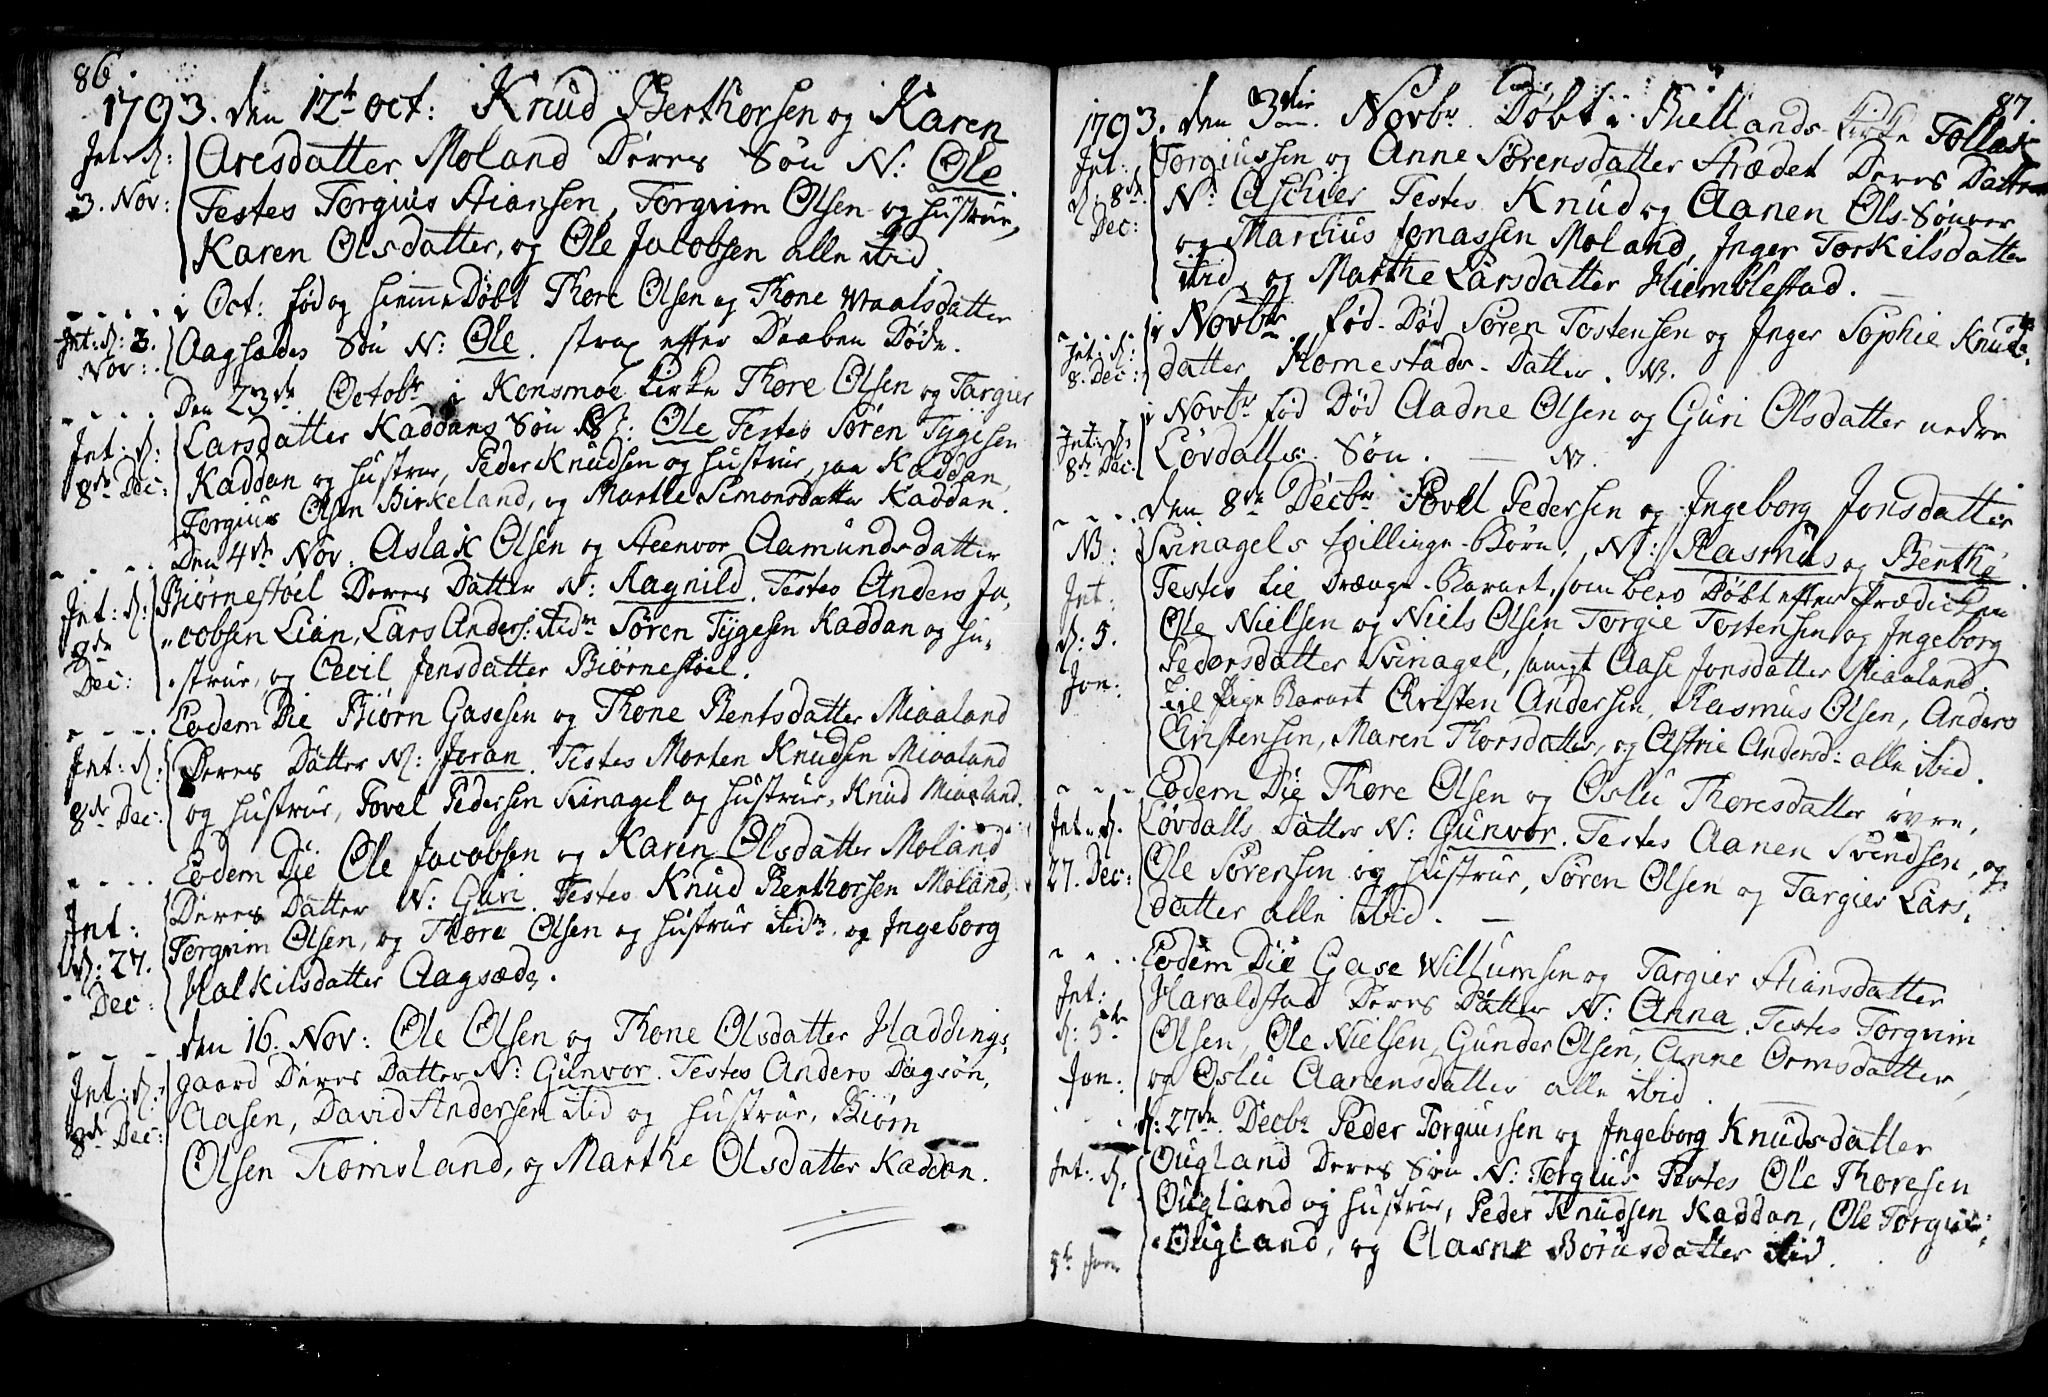 86
1793. den 12t oct: Knud Berthorsen og Karen
Int. d: Aresdatter Moland Deres Søn N: Ole
3. Nov: Testes Torgius Stiansen, Torgrim Olsen og hustrue,
Karen Olsdatter, og Ole Jacobsen alle ibid.
i Oct: fød og hiemmeDøbt Thore Olsen og Thone Waalsdatter
Int: d: 3. Nov: Aagsædes Søn N: Ole. strax efter Daaben Døde.
Den 23de Octobr i Konsmoe Kirke Thore Olsen og Targier
Int: d: Larsdatter Kaddans Søn N: Ole Testes Søren Tygesen
8de Dec: Kaddan og hustrue, Peder Knudsen og hustrue, paa Kaddan,
Torgius Olsen Birkeland, og Marthe Simonsdatter Kaddan.
Den 4de Nov: Aslak Olsen og Steenvor Aamundsdatter
Int: d: Biørnestøel Deres Datter N: Ragnild. Testes Anders Ja,
8de cobsen Lian, Lars Anders: ibidm Søren Tygesen Kaddan og hu-
Dec: strue, og Cecil Jensdatter Biørnestøel.
Eodem Die Biørn Gasesen og Thone Bentsdatter Miaaland
Int: d: Deres Datter N: Joran. Testes Morten Knudsen Miaaland
8de Dec: og hustrue, Povel Pedersen Svinagel og hustrue, Knud Miaaland.
Eodem Die Ole Jacobsen og Karen Olsdatter Moland
Int: Deres Datter N: Guri. Testes Knud Berthorsen Moland,
d: 27. Torgrim Olsen, og Thore Olsen og hustrue ibidm. og Ingeborg
Dec: Halkilsdatter Aagsæde.
den 16. Nov: Ole Olsen og Thone Olsdatter Haddings-
Int: d: gaard Deres Datter N: Gunvor. Testes Anders Dagsøn,
8de Dec: Aasen, David Andersen ibid og hustrue, Biørn
Olsen Tromsland, og Marthe Olsdatter Kaddan.
87.
1793. den 3die Novbr. Døbt i Biellands Kirke Tollak
Int: Torgiussen og Anne Sørensdatter Strædet Deres Datter
d. 8de N: Aschier Testes Knud og Aanen Ols-Sønner
Dec: og Marcius Jonassen Moland, Inger Torkilsdatter
ibid, og Marthe Larsdatter Hiemblestad.
i Novbr. fød-Død Søren Tostensen og Inger Sophie Knuds-
Int: d: 8. Dec: datter Homestads-Datter. N.
i Novbr fød Død Aadne Olsen og Guri Olsdatter nedre
Int: d: 8de Dec: Løvdalls. Søn. N.
den 8de Decbr Povel Pedersen og Ingeborg Jonsdatter
NB: Svinagels tvillinge-Børn, N: Rasmus og Berthe
Int: Testes tie Drænge-Barnet, som blev Døbt efter Prædicken
d: 5. Ole Nielsen og Niels Olsen Torgie Tostensen og Ingeborg
Jan: Pedersdatter Svinagel, samt Aase Jonsdatter Miaaland
til Pige Barnet Christen Andersen, Rasmus Olsen, Anders
Christensen, Maren Thorsdatter, og Astrie Andersd: alle ibid.
Eodem Die Thore Olsen og Oslu Thoresdatter øvre,
Int. d. Løvdalls Datter N: Gunvor. Testes Aanen Svendsen, og
27. Dec: Ole Sørensen og hustrue, Søren Olsen og Targier Lars-
datter alle ibid.
Eodem Die Gase Willumsen og Targier Stiansdatter
Int: Haraldstad Deres Datter N: Anna. Testes Torgrim
d: 5te Olsen, Ole Nielsen, Gunder Olsen, Anne Ormsdatter,
Jan: og Oslu Aanensdatter alle ibid.
d: 27de Decbr Peder Torgiussen og Ingeborg Knudsdatter
Int: d. Ougland Deres Søn N: Torgius Testes Ole Thoresen
Ougland og hustrue, Peder Knudsen Kaddan, Ole Torgius:
5t Ougland, og Aasne Børusdatter ibid.